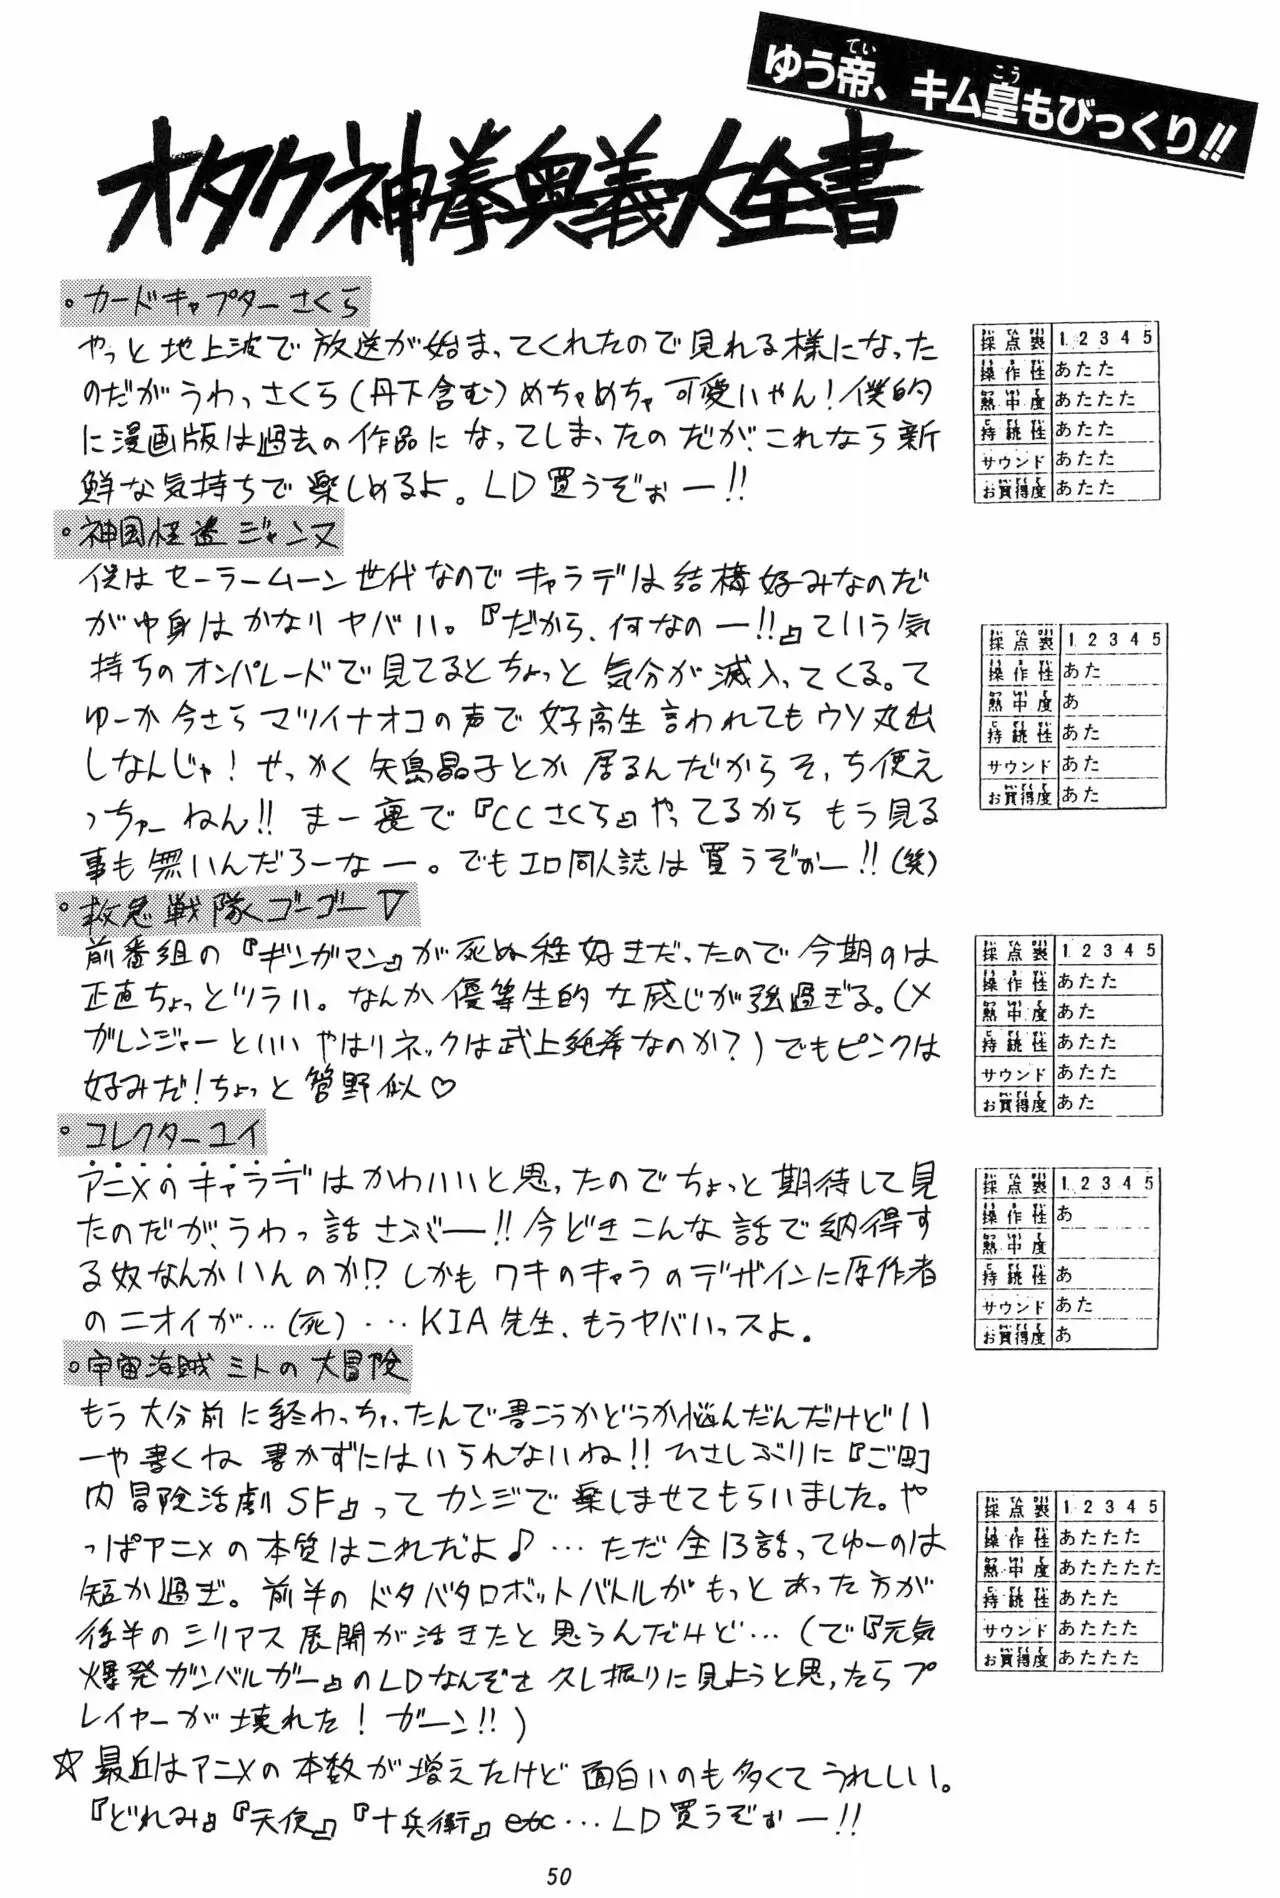 ゆう帝、キム皇もびっくり!!
オタク神拳奥義大全書
。カードキャプターさくら
やっと地上波で放送が始まってくれたので見れる様になった
のだがうわっさくら(丹下含む)めちゃめちゃ可愛いやん!僕的
に漫画版は過去の作品になってしまったのだが、これなら新
鮮な気持ちで楽しめるよ。LD買うぞぉー!!
採点表 1 2 3 4 5
操作性 あたた
熱中度 あたたた
持続性 あたた
サウンド あたた
お買得度 あたた
。神風怪盗ジャンヌ
僕はセーラームーン世代なのでキャラデは結構好みなのだ
が中身はかなりヤバい。『だから、何なのー!!』ていう気
持ちのオンパレードで見てるとちょっと気分が滅入ってくる。て
ゆーか今さらマツイナオコの声で女子高生言われてもウソ丸出
しなんじゃ!せっかく矢島晶子とか居るんだからそっち使え
っちゃーねん!!まー裏で『CCさくら』やってるからもう見る
事も無いんだろーなー。でもエロ同人誌は買うぞぉー!!(笑)
採点表 1 2 3 4 5
操作性 あた
熱中度 あ
持続性 あた
サウンド あた
お買得度 あた
。救急戦隊ゴーゴーV
前番組の『ギンガマン』が死ぬ程好きだったので今期のは
正直ちょっとツラい。なんか優等生的な感じが強過ぎる。(メ
ガレンジャーといいやはりネックは武上純希なのか?)でもピンクは
好みだ!ちょっと管野似♡
採点表 1 2 3 4 5
操作性 あたた
熱中度 あた
持続性 あたた
サウンド あたた
お買得度 あた
。コレクターユイ
アニメのキャラデはかわいいと思ったのでちょっと期待して見
たのだが、うわっ話さぶーー!!今どきこんな話で納得す
る奴なんかいんのか!?しかもワキのキャラのデザインに原作者
のニオイが…(死)…KIA先生、もうヤバいっスよ。
採点表 1 2 3 4 5
操作性 あ
熱中度
持続性 あ
サウンド あた
お買得度 あ
。宇宙海賊ミトの大冒険
もう大分前に終わっちゃったんで書こうかどうか悩んだんだけどい
ーや書くね書かずにはいられないね!!ひさしぶりに『ご町
内冒険活劇SF』ってカンジで楽しませてもらいました。や
っぱアニメの本質はこれだよ♪…ただ全13話ってゆーのは
短か過ぎ。前半のドタバタロボットバトルがもっとあった方が
後半のシリアス展開が活きたと思うんだけど…(で『元気
爆発ガンバルガー』のLDなんぞを久し振りに見ようと思ったらプ
レイヤーが壊れた!ガーン!!)
採点表 1 2 3 4 5
操作性 あたたた
熱中度 あたたたた
持続性 あたた
サウンド あたたた
お買得度 あたたた
☆最近はアニメの本数が増えたけど面白いのも多くてうれしい。
『どれみ』『天使』『十兵衛』etc…LD買うぞぉー!!
50